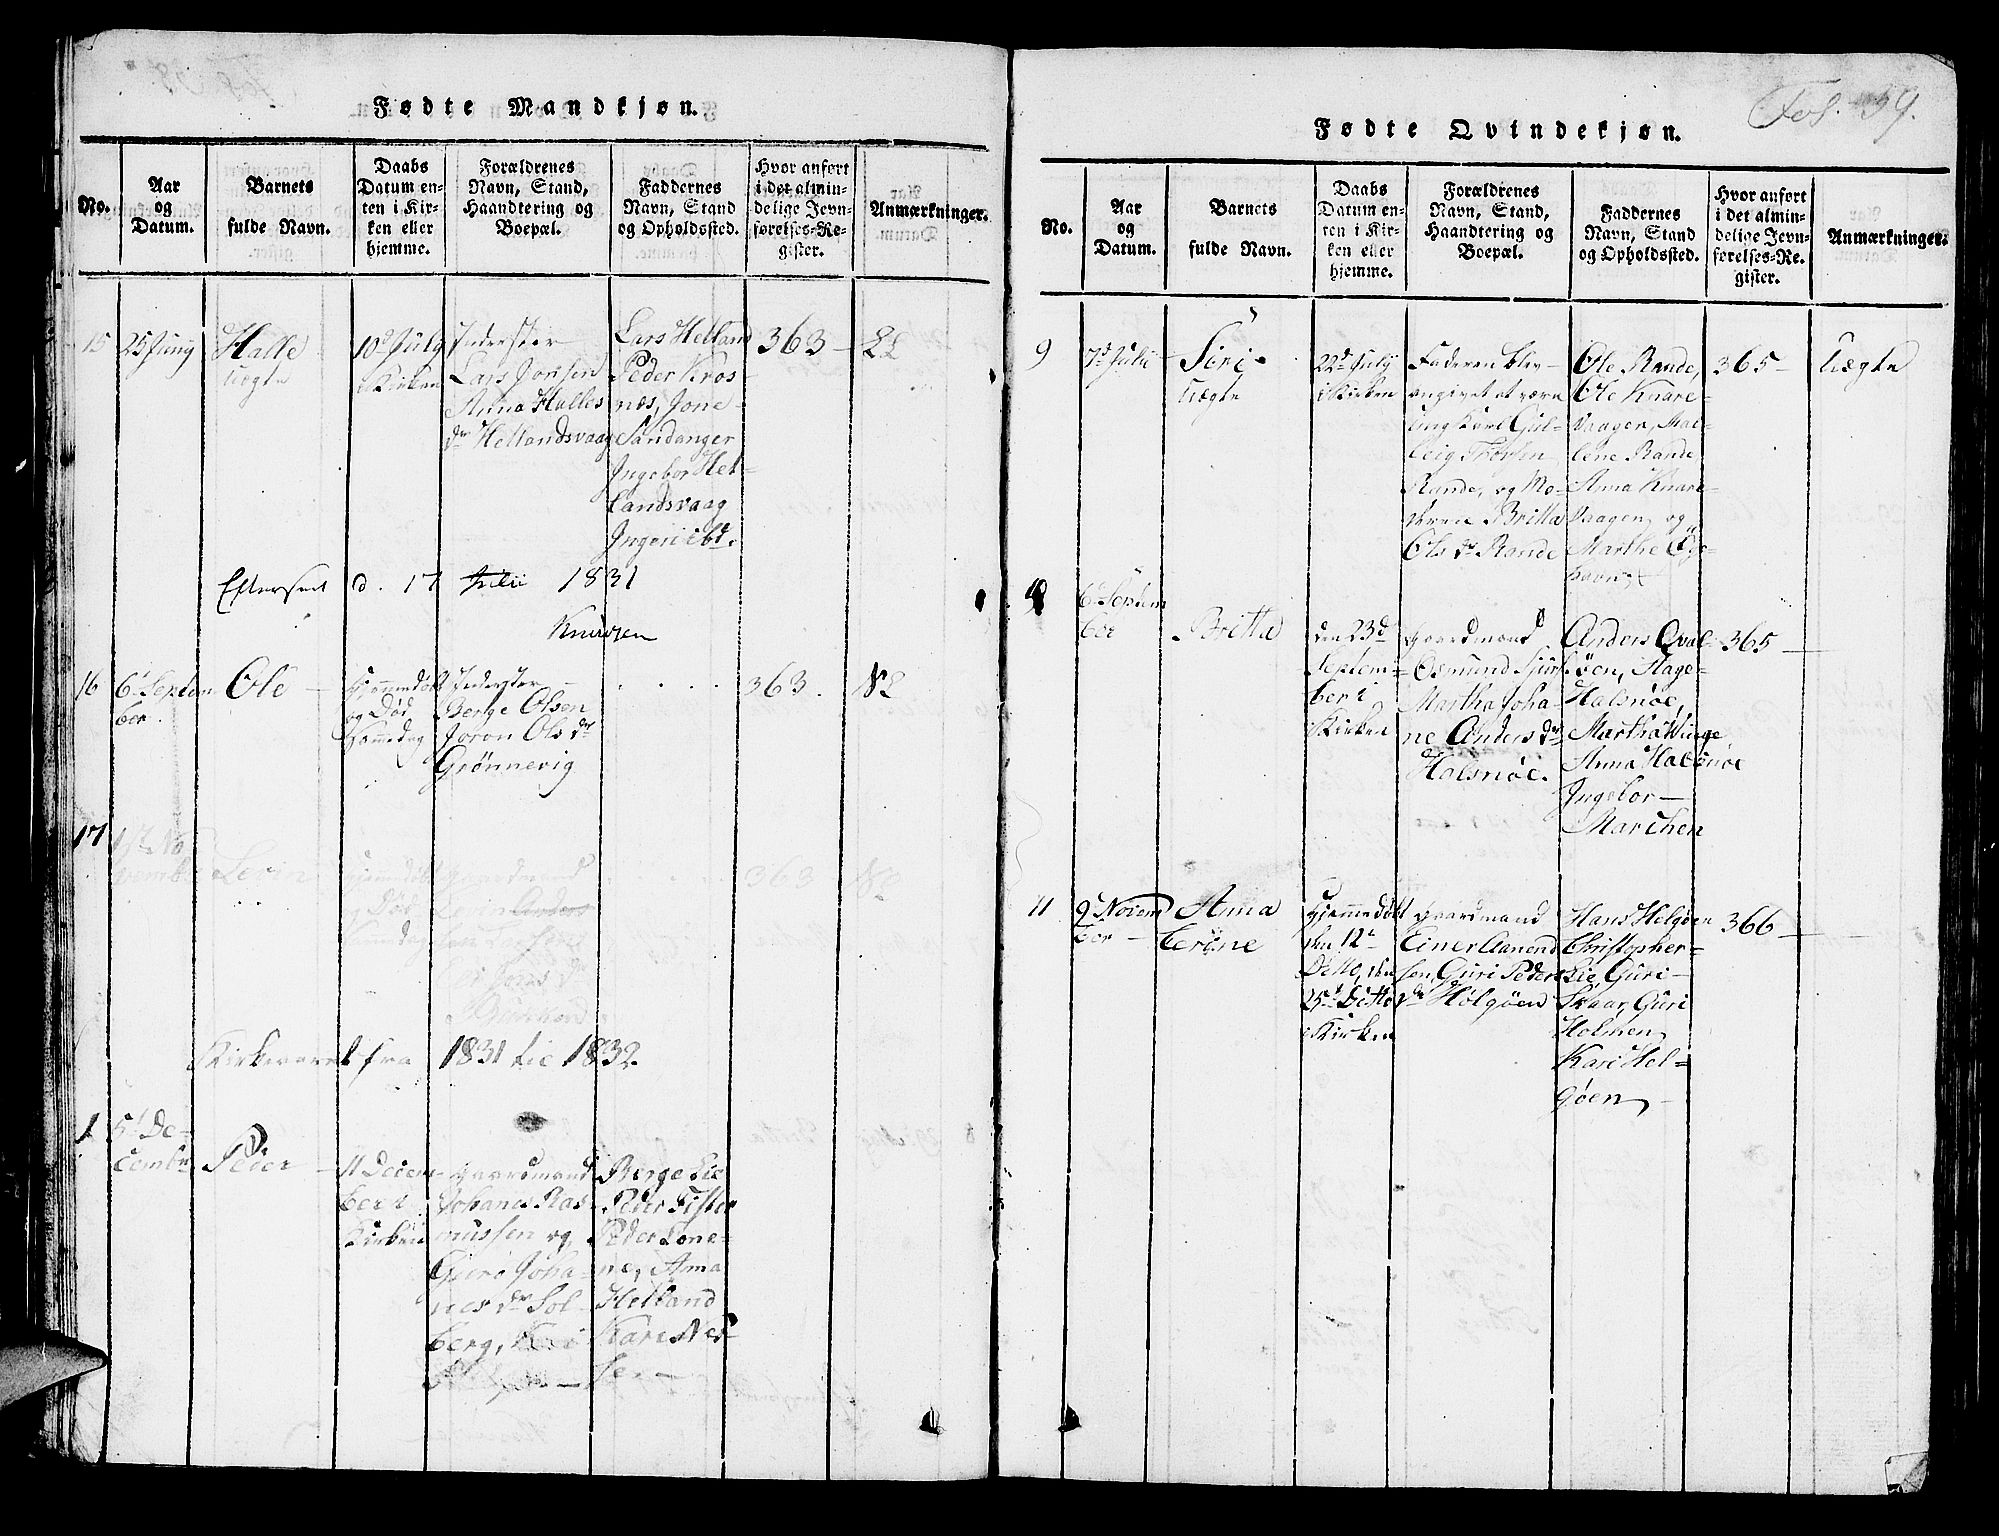 Fødte Mandkjøn.
No.
Aar
og
Datum.
Barnets
fulde Navn.
Daabs
Datum en-
ten i Kir-
ken eller
hjemme.
Forældrenes
Navn, Stand,
Haandtering og
Boepæl.
Faddernes
Navn, Stand
og Opholdssted.
Hvor anført
i det almin-
delige Jevn-
førelses-Re-
gister.
Anmærkninger.
15
25 Juny
Halle
Uægte
10d July
i Kirken
Inderster
Lars Jonsen
Anna Halles
dr Hellandsvaag
Lars Helland
Peder Kros-
nes, Jone
Sandanger
Ingebor Hel-
landsvaag
Ingeri ibd.
363
Efterseet d. 17 Julii 1831
Knudsen
16
6d Septem
ber.
Ole
Hjemmedøbt
og Død
samme dag
Inderster
Berge Olsen
Joron Ols dr
Grønnevig
363.
17
17d No
vembr
hjemmedøbt
og Død
samme dag
Gaardmand
363
Kirkeaaret fra 1831 til 1832.
1
5d De-
cembr
Peder
11 Decem-
ber i
Kirken
Gaardmand
Johanes Ras-
mussen og
Guro Joha-
nes dr Sol-
berg,
Berge Lie
Peder Fister
Peder Lone-
ne, Anna
Helland
Kari Nes-
ser
Fol. 39.
Fødte Qvindekjøn.
No.
Aar
og
Datum.
Barnets
fulde Navn.
Daabs
Datum en-
ten i Kir-
ken eller
hjemme.
Forældrenes
Navn, Stand,
Haandtering og
Boepæl.
Faddernes
Navn, Stand
og Opholdssted.
Hvor anført
i det almin-
delige Jevn-
førelses-Re-
gister.
Anmærkninger.
9
7d Julii
Siri
Uægte
22d July
i Kirken
Faderen blev
angivet at være
ung Karl Gul-
leig Torsen
Rande, og Mo-
deren Britta
Ols dr Rande
Ole Rande,
Ole Knare-
vaagen, Mal-
lene Rande
Anna Knare-
vaagen, og
Marthe
havn,
365
Uægte
10
6d Septem
ber
Britta
den 23d
Septem-
ber i
Kirken
Gaardmand
Osmund Sjurs.
Martha Joha-
ne Anders dr
Halsnøe.
Anders Qval-
øen, Aage
Halsnøe,
Martha Winge
Anna Halsnøe
Ingebor
Marichen
365
11
9d Novem
ber
Anna
Serine
Hjemmedøbt
den 12d
Ditto, den
25d Ditto
i Kirken
Gaardmand
Einer Aanend
sen, Guri Peders
dr Helgøen
Hans Helgøen
Christopher
Lie, Guri
Skaar, Guri
Holmen
Kari Hel-
gøen,
366